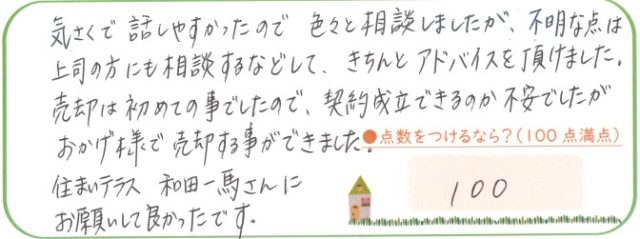 気さくで話しやすかったので 色々と相談しましたが、不明な点は
上司の方にも相談するなどして、きちんとアドバイスを頂けました。
売却は初めての事でしたので、契約成立できるのか不安でしたが
おかげ様で売却する事ができました。
●点数をつけるなら?(100点満点)
住まいテラス 和田一馬さんに
お願いして良かったです。
100